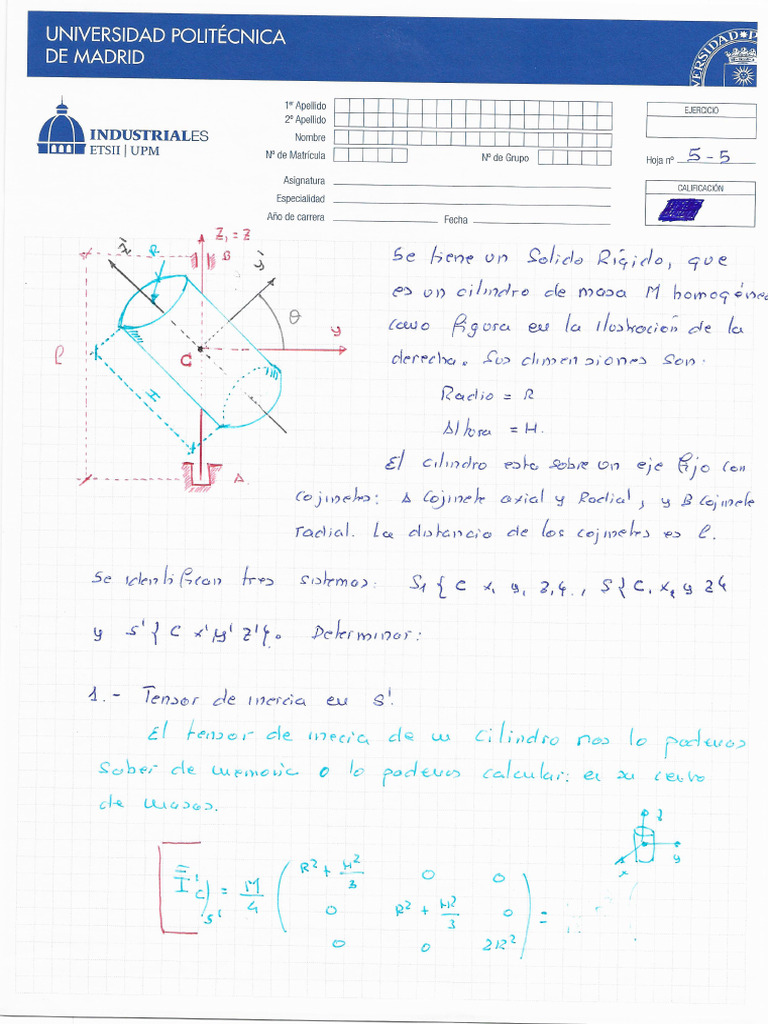 UNIVERSIDAD POLITÉCNICA
DE MADRID
INDUSTRIALES
ETSII | UPM
1er Apellido
2º Apellido
Nombre
Nº de Matrícula
Nº de Grupo
Asignatura
Especialidad
Año de carrera
Fecha
EJERCICIO
Hoja nº 5-5
CALIFICACIÓN
Z₁ = Z
B
R
θ
y
C
H
l
A.
Se tiene un Solido Rígido, que
es un cilindro de masa M homogéneo
como figura en la Ilustración de la
derecha. Sus dimensiones son:
Radio = R
Altura = H.
El cilindro esta sobre un eje fijo con
cojinetes: A cojinete axial y Radial, y B cojinete
radial. La distancia de los cojinetes es l.
Se identifican tres sistemas: S₁ { C x₁ y₁ z₁ }., S { C, x, y z }
y S' { C x' y' z' }. Determinar:
1.- Tensor de inercia en S'.
El tensor de inecia de un cilindro nos lo podemos
saber de memoria o lo podemos calcular: en su centro
de masas.
z
y
x
I'c)s' = M/4 ( R² + H²/3 0 0
0 R² + H²/3 0 ) =
0 0 2R²